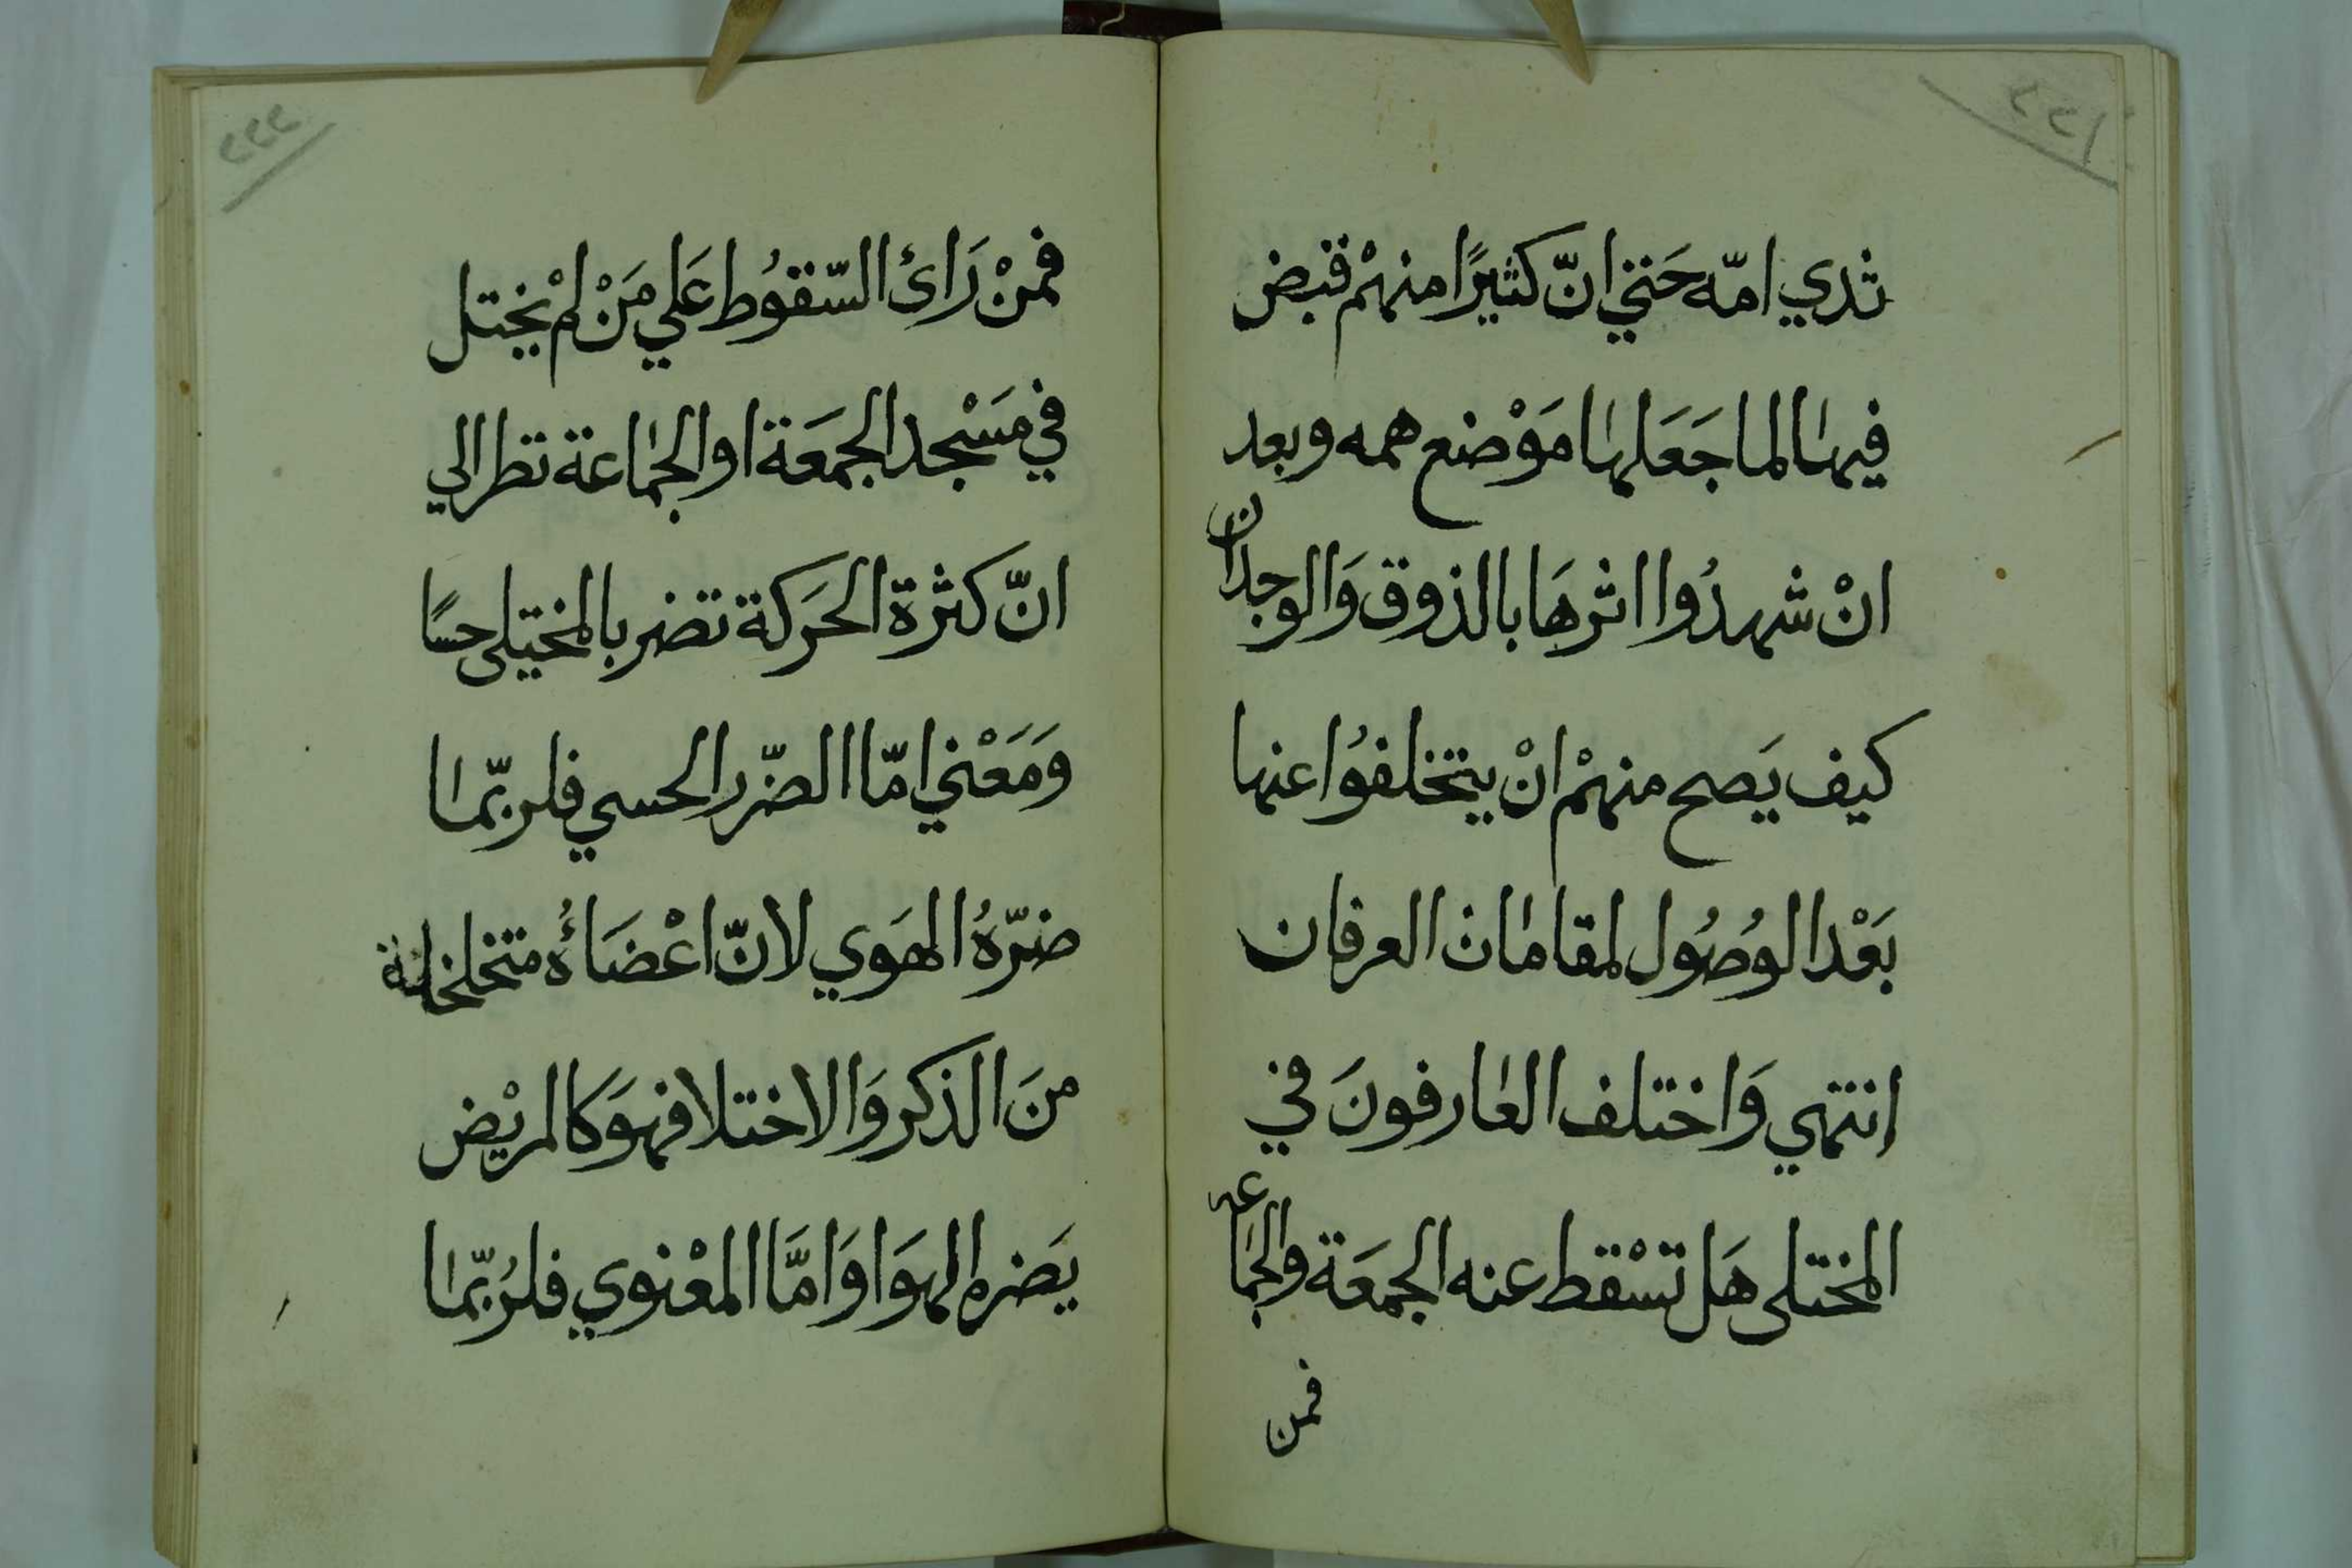 ٢٢١
ثدي امّه حَتي انّ كثيرًا منهمْ قبض
فيها لما جَعَلها مَوْضع همه وبعد
انْ شهدُوا اثرهَا بالذوق وَالوجدان
كيف يَصح منهمْ انْ يتخلفوُا عنها
بَعْد الوُصُول لمقامات العرفان
انتهي وَاختلف العارفونَ في
المختلى هَل تسْقط عنه الجمعَة والجماعه
فمن
٢٢٢
فمنْ رَائ السّقوُط عَلي مَنْ لمْ يختل
في مَسْجد الجمعَة او الجماعة نظر الي
انّ كثرة الحَركة تضر بالمختلى حسًا
وَمَعْني امّا الضّرر الحسي فلربّما
ضرّهُ الهَوي لانّ اعْضَاءُه متخلخلة
منَ الذكر وَالاختلا فهوَ كالمريْض
يَضره الهوَا وَامَّا المعْنوي فلرُبّما